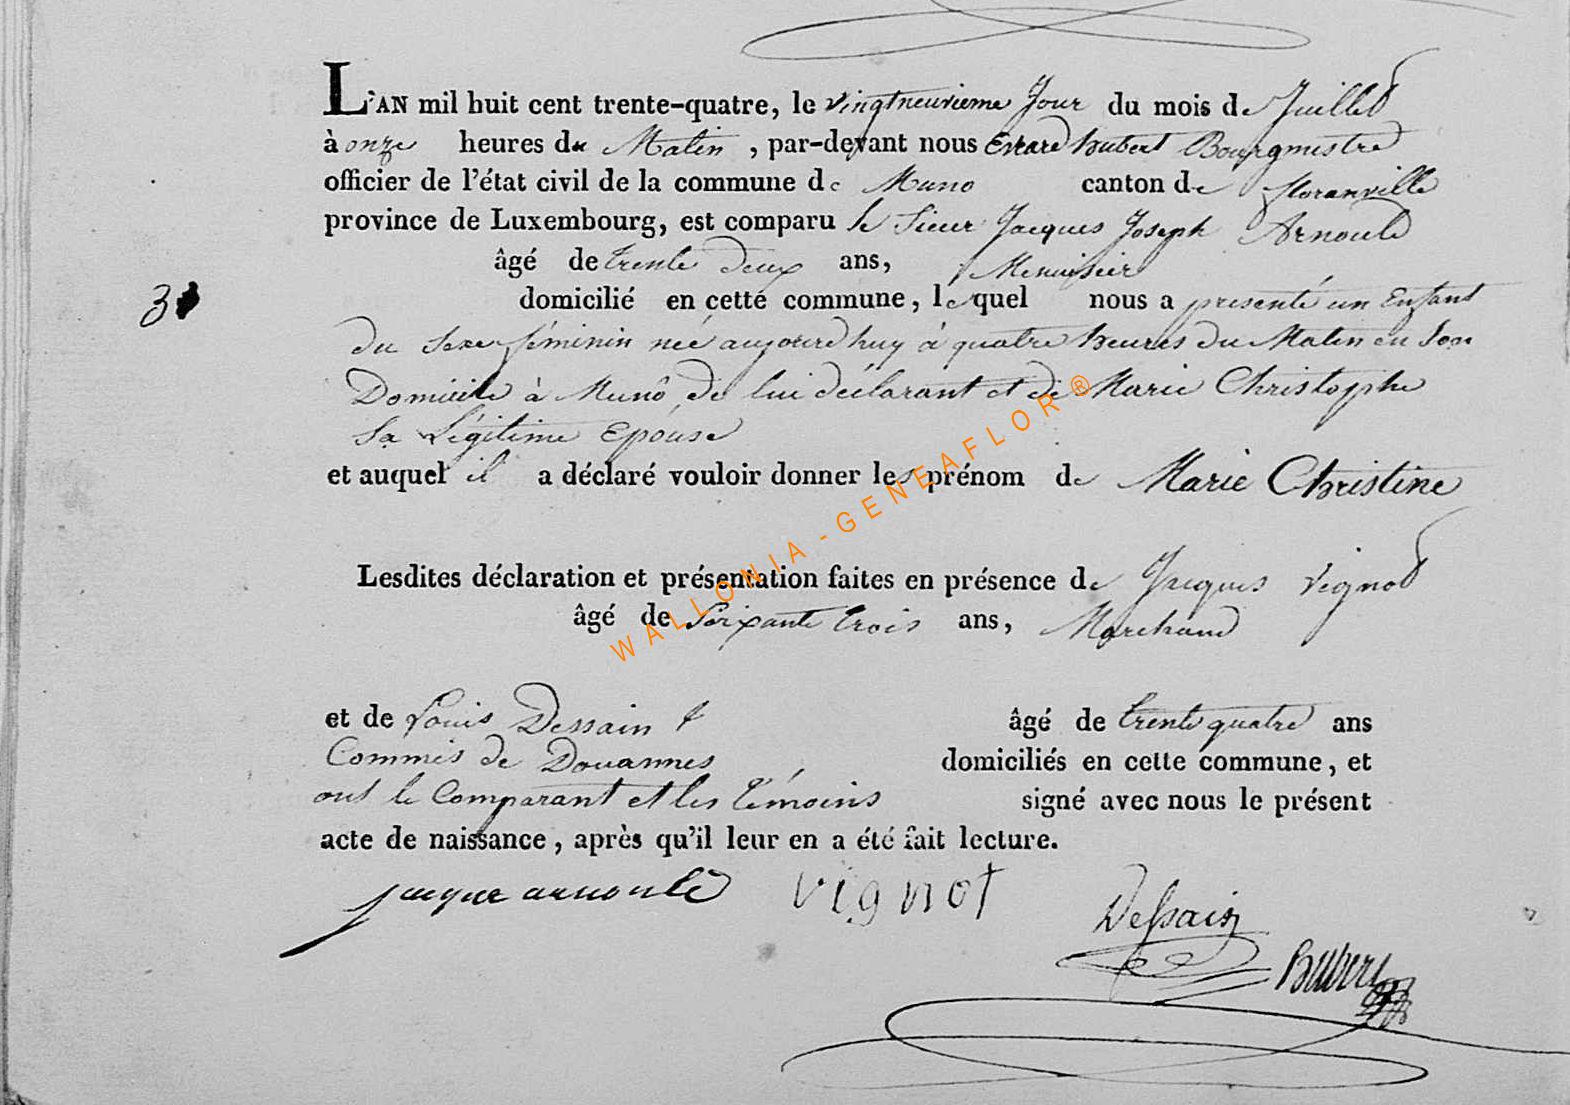 L'AN mil huit cent trente-quatre, le vingtneuvieme Jour du mois de Juillet
à onze heures du Matin, par-devant nous Evrard hubert Bourgmestre
officier de l'état civil de la commune de Muno canton de floranville
province de Luxembourg, est comparu le Sieur Jacques Joseph Arnould
âgé de trente deux ans, Menuisier
3
domicilié en cette commune, lequel nous a presenté un Enfant
du Sexe féminin née aujourd huy à quatre heures du Matin en Son
Domicile à Munô de lui déclarant et de Marie Christophe
Sa Légitime Epouse
et auquel il a déclaré vouloir donner les prénom de Marie Christine
Lesdites déclaration et présentation faites en présence de Jacques Vignot
âgé de Soixante trois ans, Marchand
et de Louis Dessain âgé de trente quatre ans
Commis de Douannes domiciliés en cette commune, et
ont le Comparant et les témoins signé avec nous le présent
acte de naissance, après qu'il leur en a été fait lecture.
jacque arnould vignot Dessain
hubert
WALLONIA - GENEAFLOR®